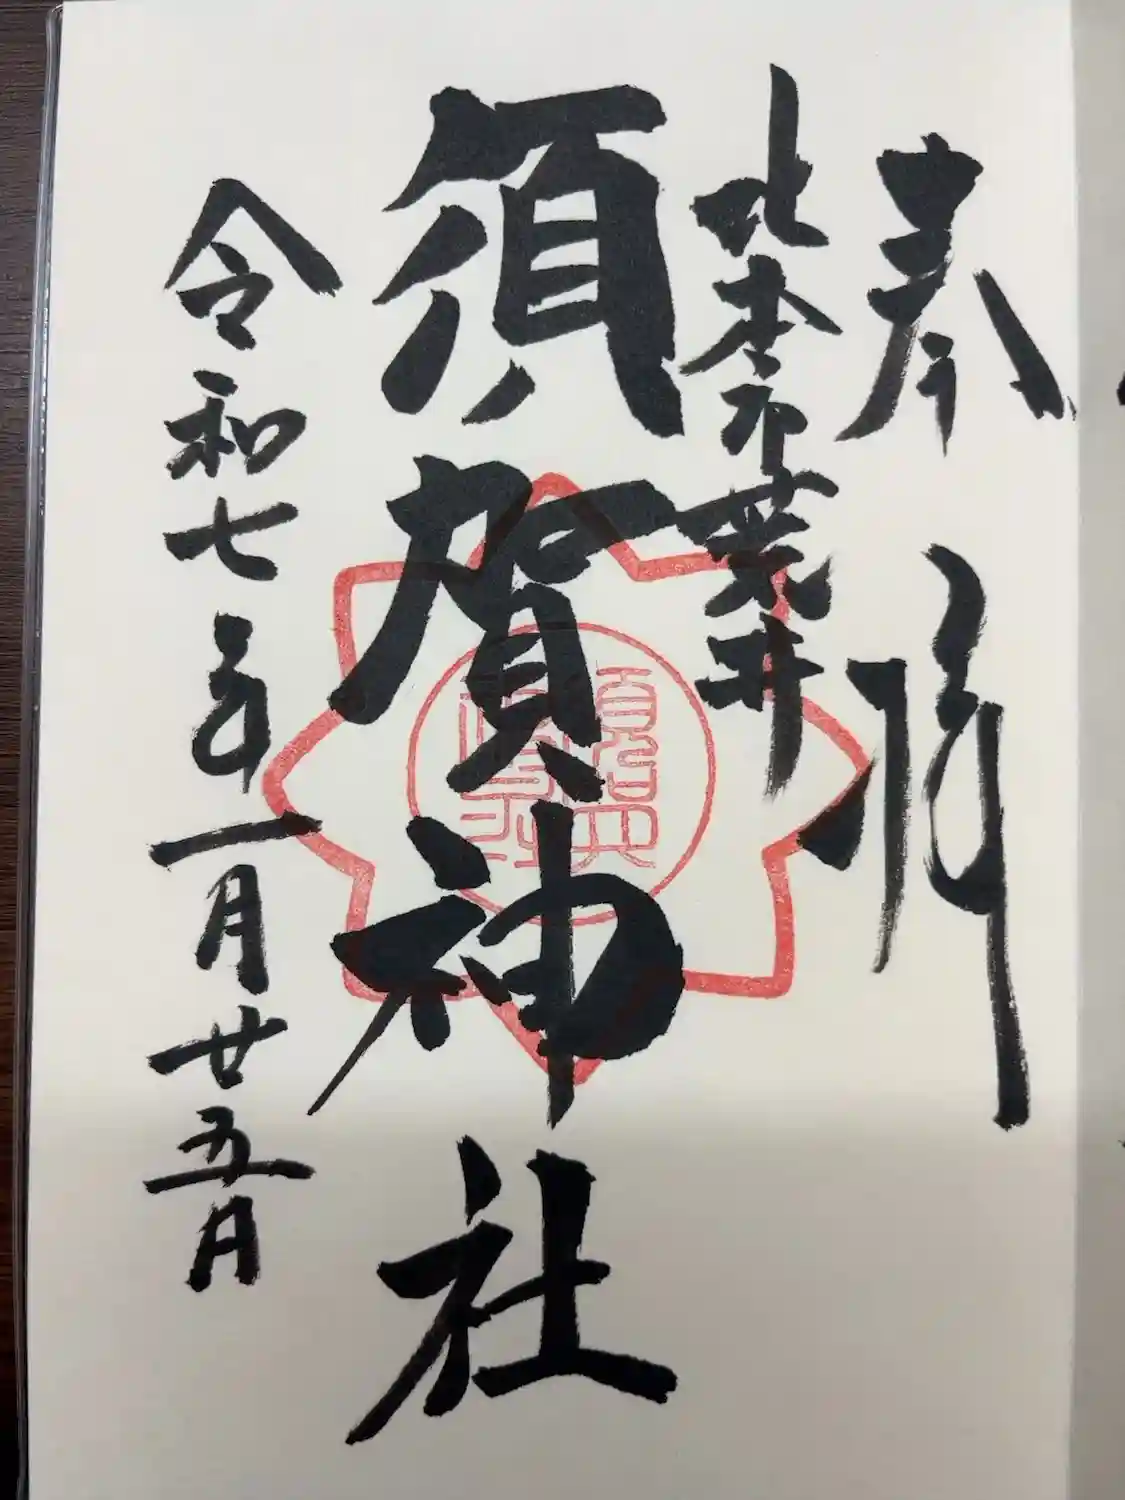 奉拝
北本市荒井
須賀神社
令和七年一月廿五日